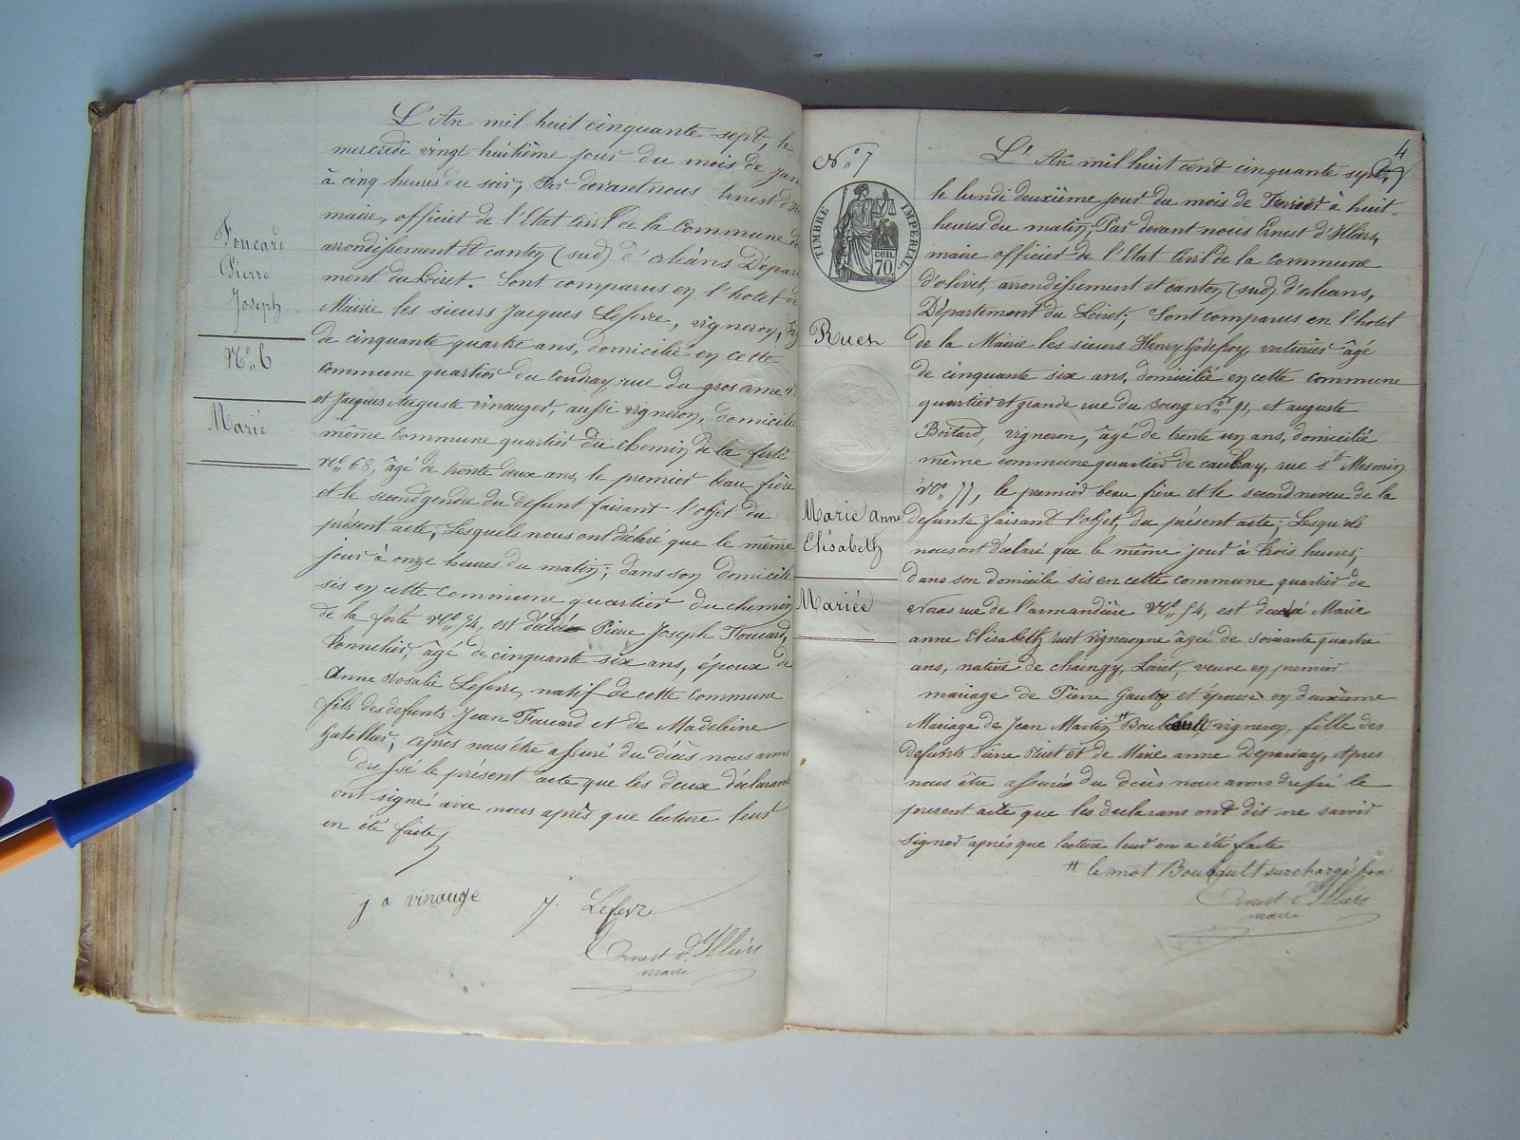 L'An mil huit cinquante sept, le
mercredi vingt huitième jour du mois de Janv
à cinq heures du soir, Par devant nous Ernest d'
maire, officier de l'Etat civil de la Commune d'
arrondissement et canton (sud) d'orléans Dépar
ment du Loiret. Sont comparus en l'hotel de
Mairie les sieurs Jacques Lefevre, vigneron,
de cinquante quatre ans, domicilié en cette
commune quartier du Coudray, rue du gros orme
et Jacques Auguste vinauger, aussi vigneron, domicilié
même Commune quartier du chemin de la ferté
N° 68, âgé de trente deux ans, le premier beau frère
et le second gendre du défunt faisant l'objet du
présent acte; Lesquels nous ont déclaré que le même
jour à onze heures du matin; dans son domicile
sis en cette Commune quartier du chemin
de la ferté N° 54, est décédé Pierre Joseph Foucard,
tonnelier, âgé de cinquante six ans, époux de
Anne Rosalie Lefevre, natif de cette Commune
fils des defunts Jean Foucard et de Madeleine
Gatellier, après nous être assuré du décès nous avons
dressé le présent acte que les deux déclarants
ont signé avec nous après que lecture leur
en été faite
j a vinauge J. Lefevre
Ernest d'Illiers
maire
Foucard
Pierre
Joseph
N° 6
Marié
4
N° 7
TIMBRE IMPÉRIAL
70
Ruet
Marie anne
Elisabeth
Mariée
L'An mil huit cent cinquante sept,
le lundi deuxième jour du mois de Fevrier à huit
heures du matin, Par devant nous Ernest d'Illiers,
maire officier de l'Etat Civil de la Commune
d'olivet, arrondissement et canton (sud) d'orleans,
Département du Loiret; Sont comparus en l'hotel
de la Mairie les sieurs Henry Godefroy, voiturier âgé
de cinquante six ans, domicilié en cette commune
quartier et grande rue du Bourg N° 91, et auguste
vigneron, âgé de trente un ans, domicilié
même commune quartier de caubray, rue St Mesmin
N° 77, le premier beau frère et le second neveu de la
defunte faisant l'objet du présent acte; Lesquels
nous ont déclaré que le même jour à trois heures;
dans son domicile sis en cette commune quartier de
rue de l'armandière N° 54, est decédé Marie
anne Elisabeth Ruet vigneronne âgée de soixante quatre
ans, native de chaingy, Loiret, veuve en premier
mariage de Pierre Gauthy et épouse en deuxième
Mariage de Jean Martin # Boubault vigneron, fille des
defunts Pierre Ruet et de Marie anne Deparday, Apres
nous être assurés du décès nous avons dressé le
present acte que les declarans ont dit ne savoir
signer après que lecture leur en a été faite
# le mot Boubault surchargé bon
Ernest d'Illiers
maire